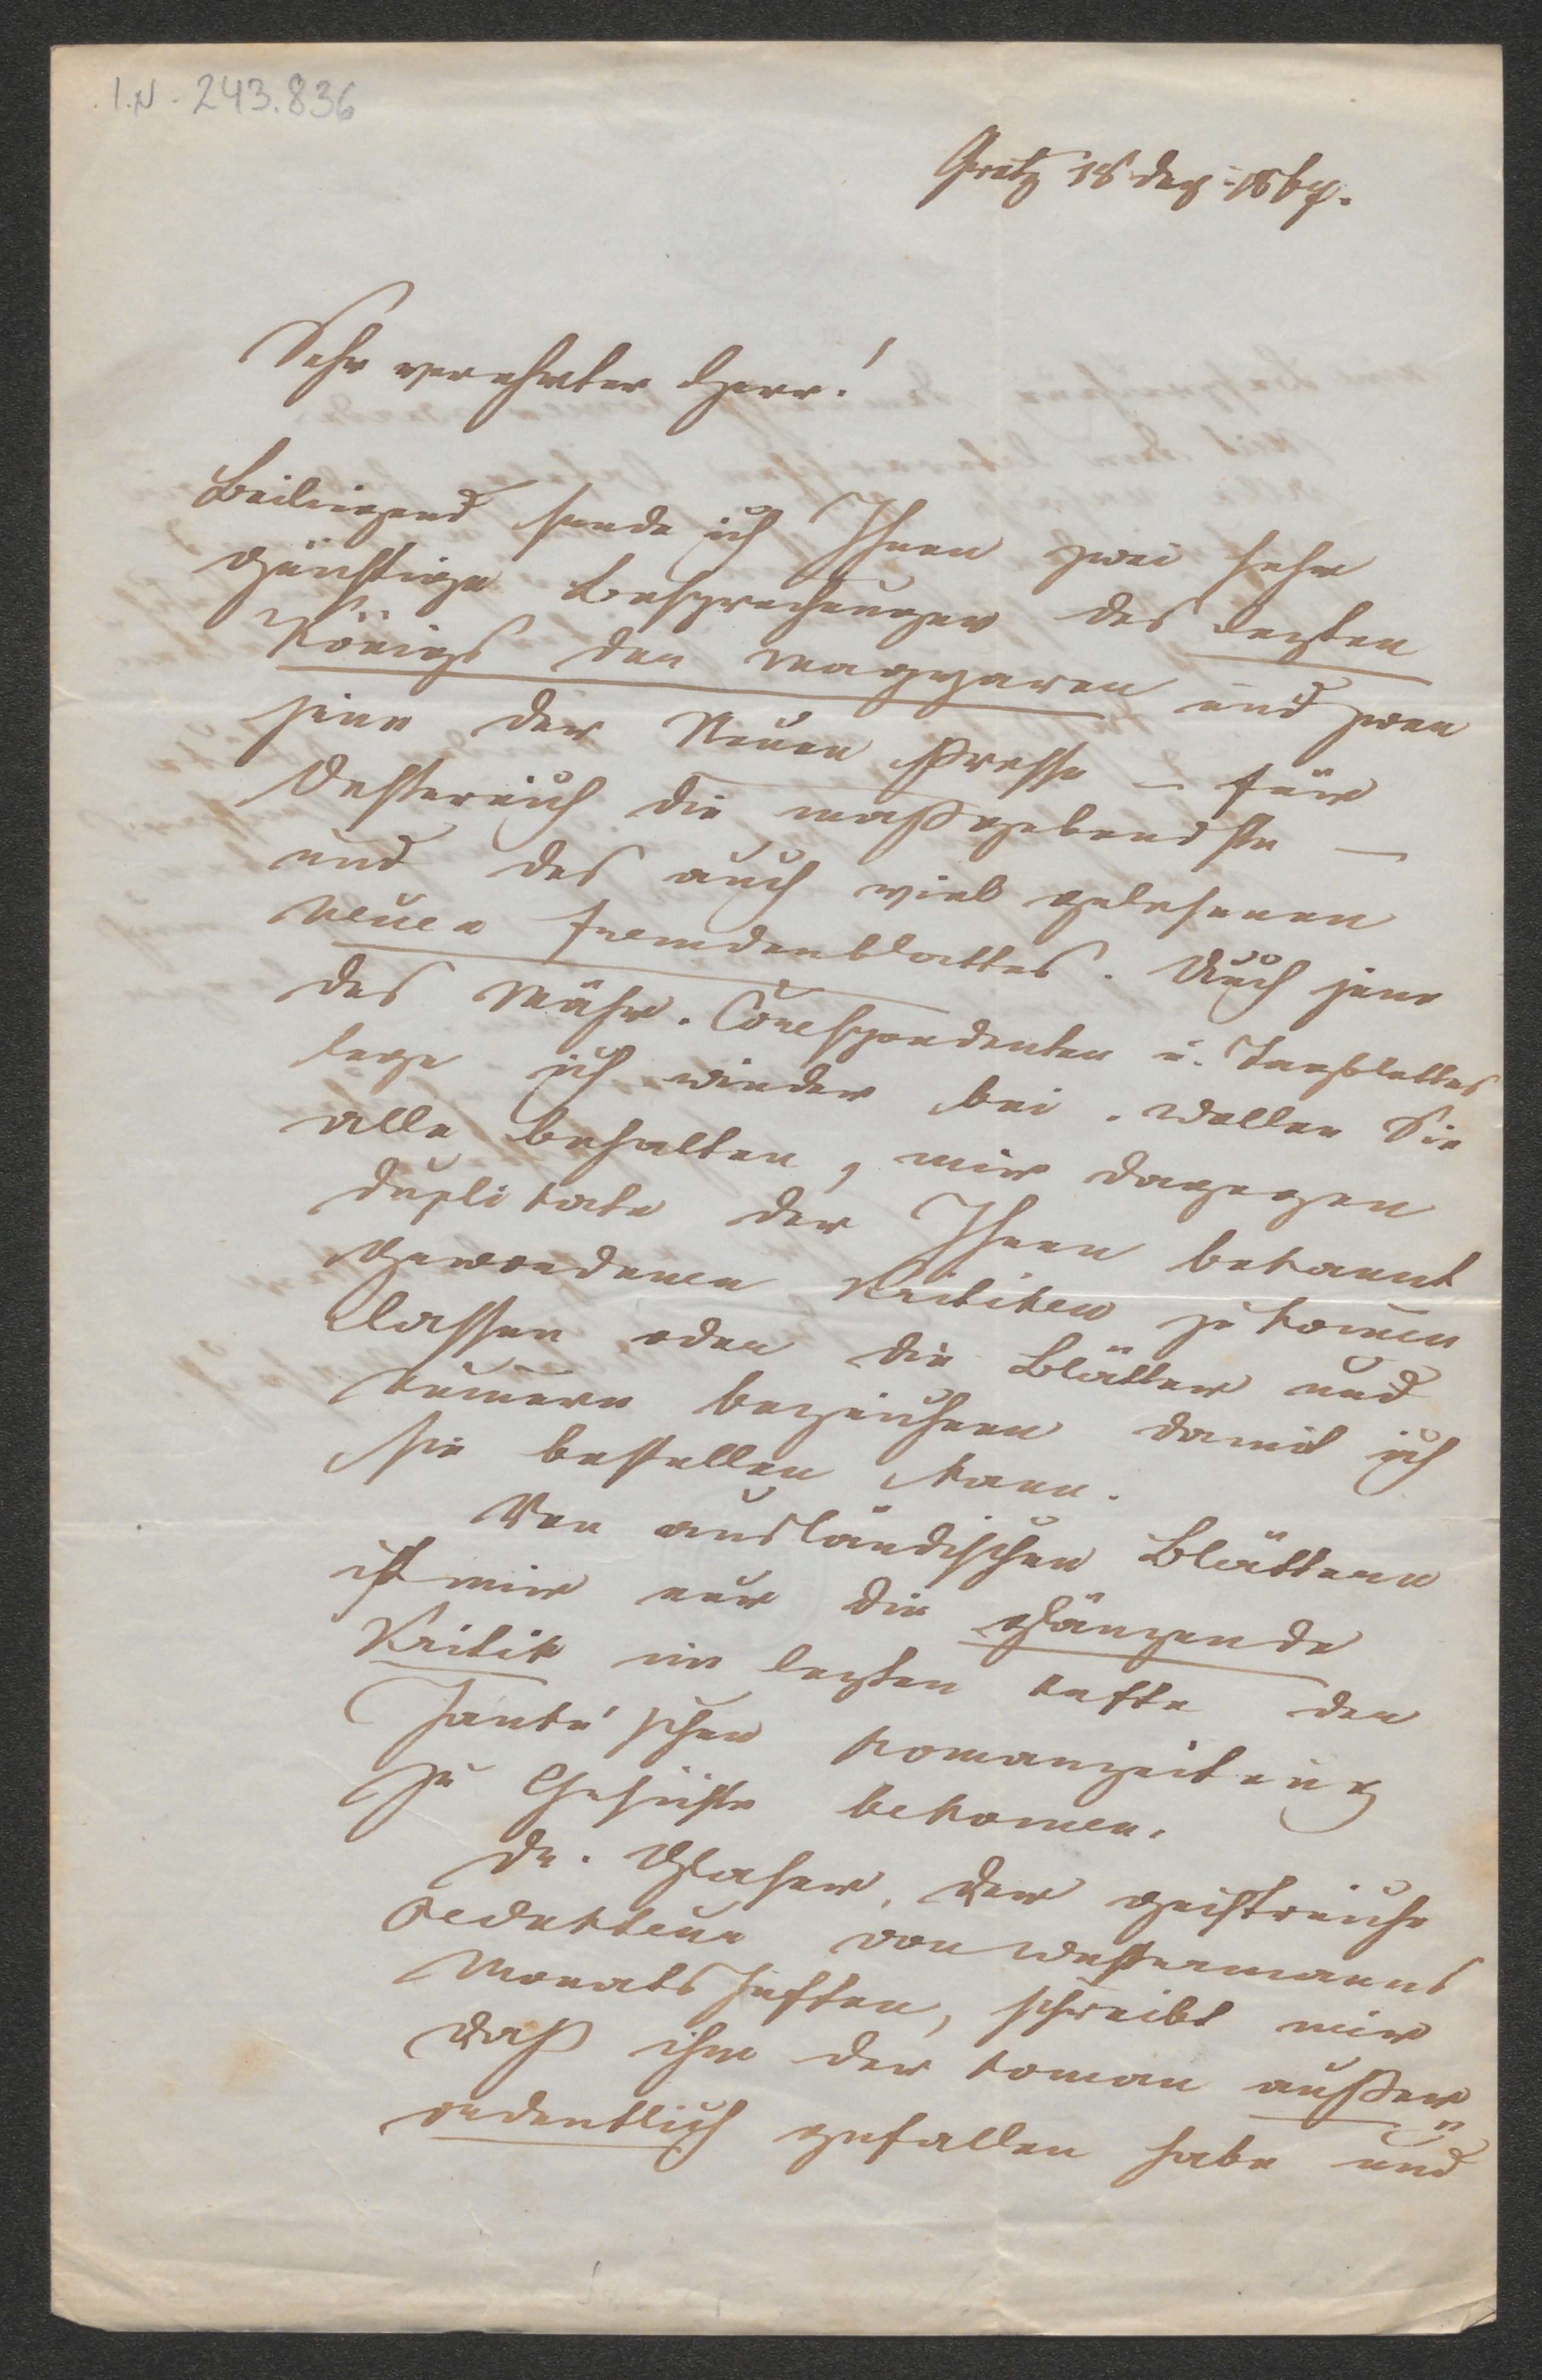 I.N. 243.836
Gratz 18 Dez. 1867.
Sehr verehrter Herr!
Beiliegend sende ich Ihnen zwei sehr
günstige Besprechungen des letzten
Königs der Magyaren und zwar
jene der Neuen Presse – für
Oesterreich die maßgebendste –
und des auch viel gelesenen
Neuen Fremdenblattes. Auch jene
des Mähr. Correspondenten u. Tagblattes
lege ich wieder bei. Wollen Sie
alle behalten, mir dagegen
Duplikate der Ihnen bekannt
gewordenen Kritiken zukom̄en
lassen oder die Blätter und
Num̄ern bezeichnen damit ich
sie bestellen kann.
Von ausländischen Blättern
ist mir nur die glänzende
Kritik im letzten Hefte der
Janke'schen Romanzeitung
zu Gesichte bekomen.
Dr. Glaser, der geistreiche
Redakteur von Westermanns
Monatsheften, schreibt mir
daß ihm der Roman außer„
ordentlich gefallen habe und